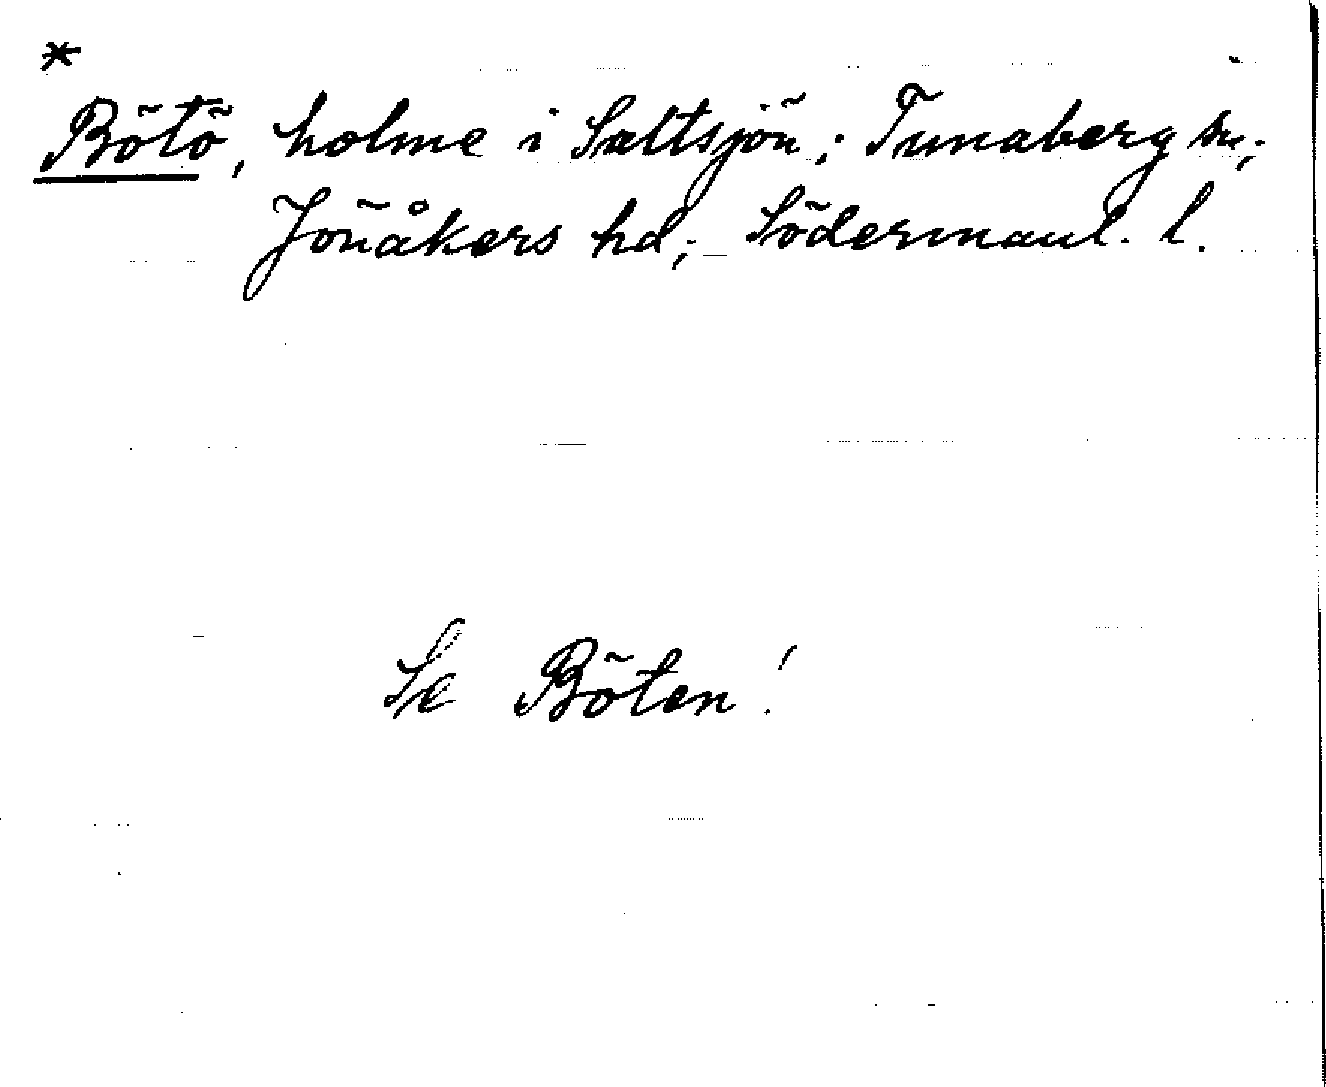 *
Bötö, holme i Saltsjön; Tunaberg sn;
Jönåkers hd; Södermanl. l.
Se Böten!